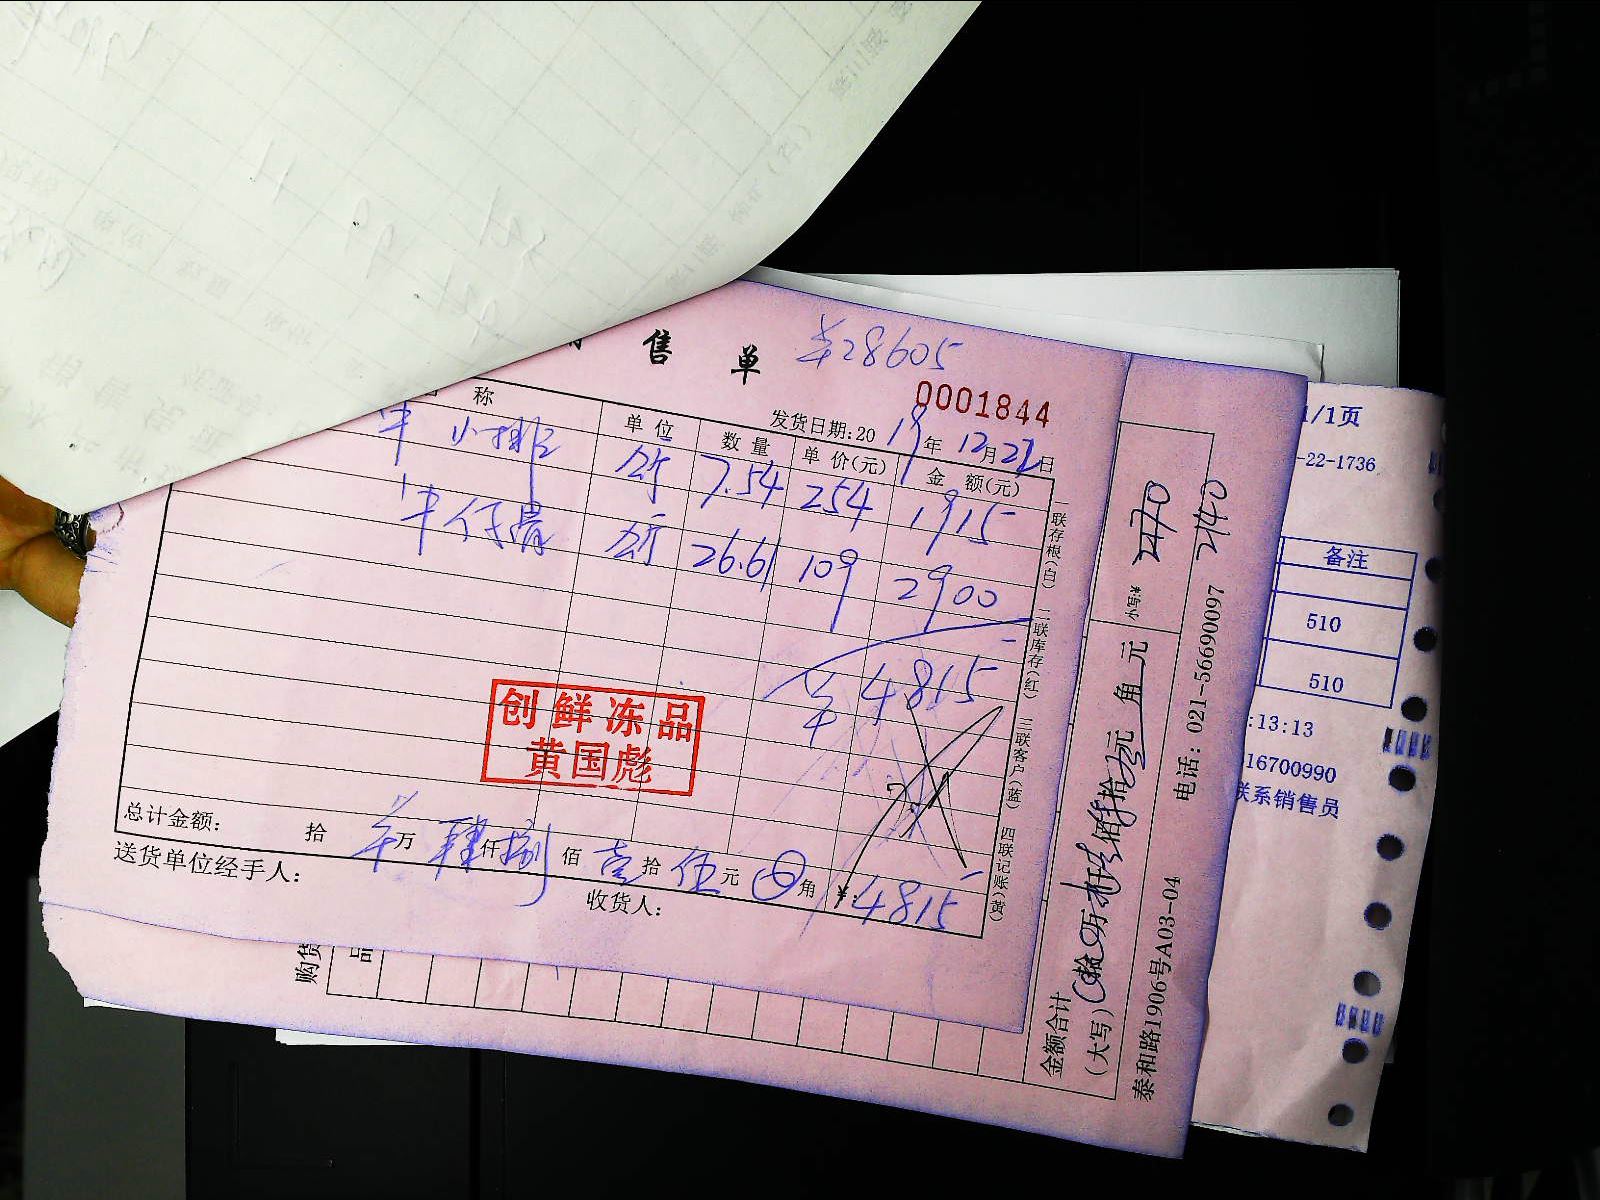 售 单
¥28605
0001844
发货日期:20 19 年 12 月 22 日
称 单位 数量 单价(元) 金 额(元)
牛小排 公斤 7.54 254 1915
牛仔骨 公斤 26.61 109 2900
¥4815
创鲜冻品
黄国彪
总计金额: 拾 万 肆 仟 捌 佰 壹 拾 伍 元 角 ¥:4815
送货单位经手人:
收货人:
一联存根(白) 二联库存(红) 三联客户(蓝) 四联记账(黄)
购货
品
金额合计
(大写)
元 角
小写:¥
2140
泰和路1906号A03-04 电话: 021-56690097
1/1页
-22-1736
备注
510
510
:13:13
16700990
联系销售员